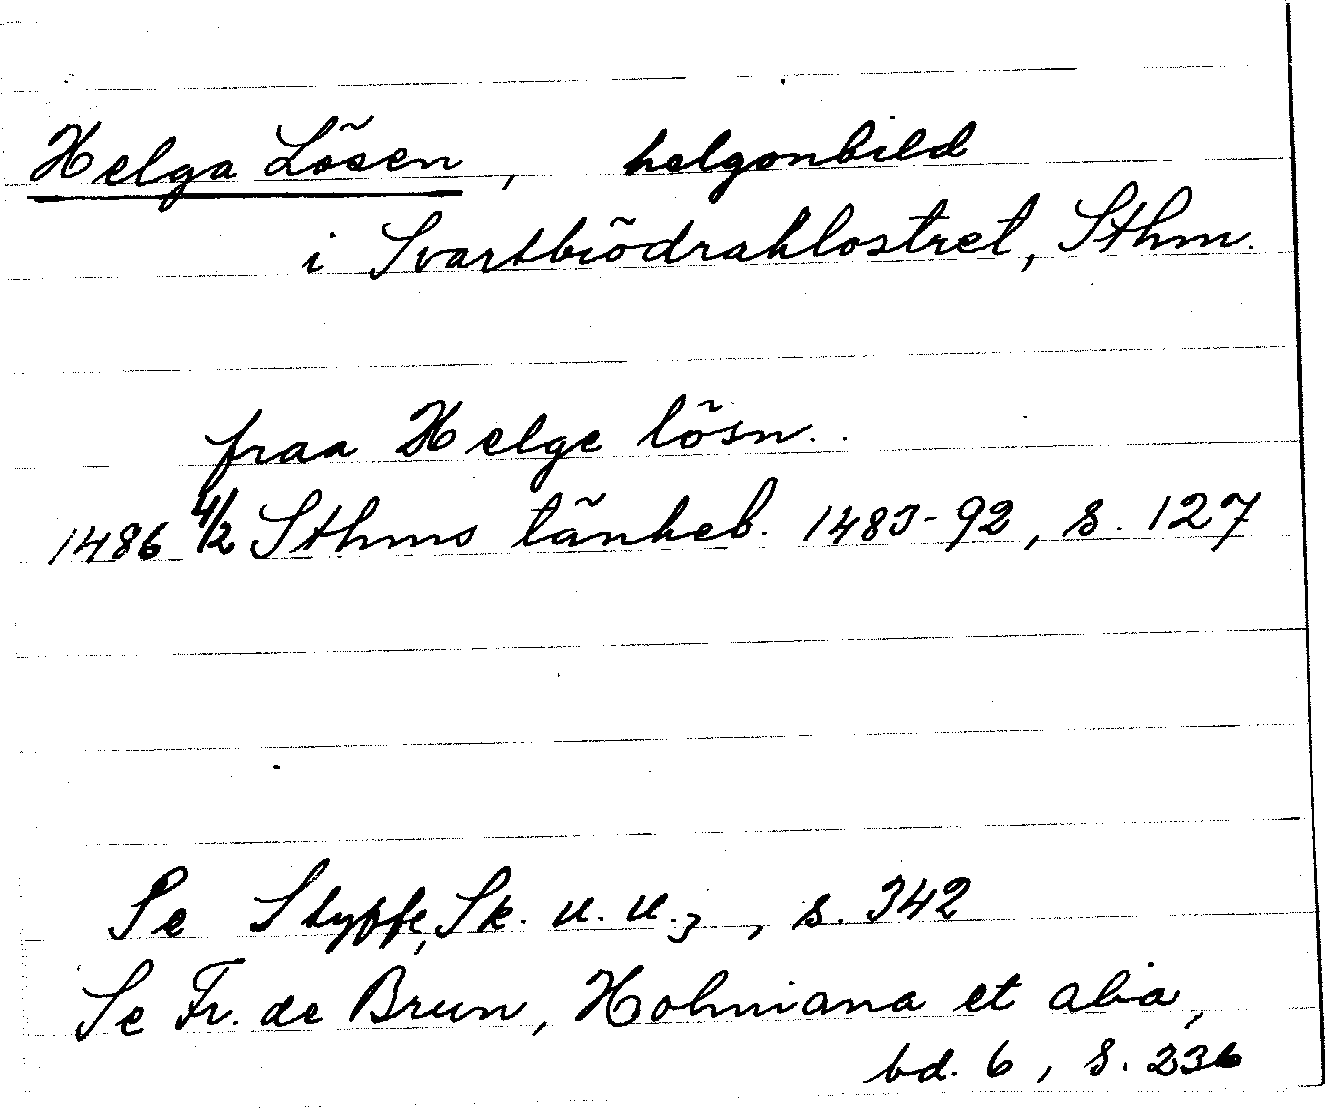 Helga Lösen, helgonbild
i Svartbrödraklostret, Sthm.
fraa Helge lösn..
1486 4/2 Sthms tänkeb. 1483-92, s. 127
Se Styffe, Sk. u. u.3, s. 342
Se Fr. de Brun, Holmiana et alia,
bd. 6, s. 236